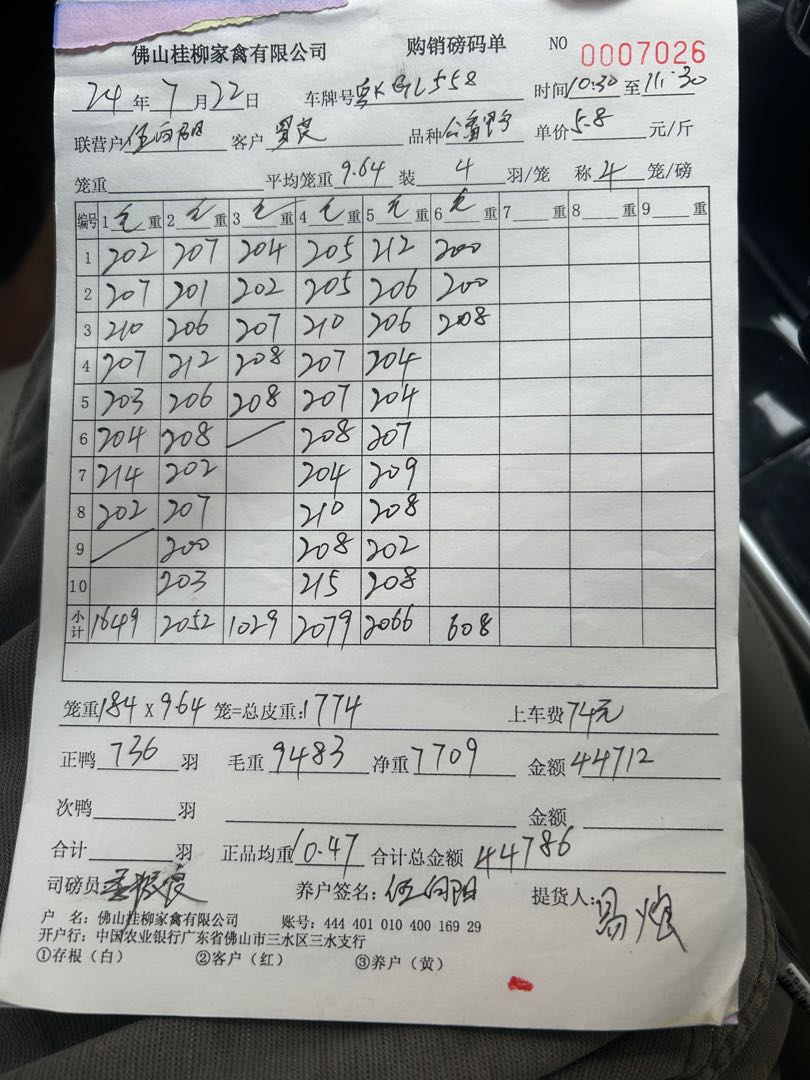 佛山桂柳家禽有限公司 购销磅码单 NO 0007026
24年7月22日 车牌号粤KGL558 时间10:30至11:30
联营户伍向阳 客户 品种 单价5.8元/斤
笼重 平均笼重9.64装4羽/笼 称4笼/磅
编号 1毛重 2毛重 3毛重 4毛重 5毛重 6毛重 7重 8重 9重
1 202 207 204 205 212 200
2 207 201 202 205 206 200
3 210 206 207 210 206 208
4 207 212 208 207 204
5 203 206 208 207 204
6 204 208 / 208 207
7 214 202 204 209
8 202 207 210 208
9 / 200 208 202
10 203 215 208
小计 1649 2052 1029 2079 2066 608
笼重184×964笼=总皮重:1774 上车费74元
正鸭736羽 毛重9483 净重7709 金额44712
次鸭羽 金额
合计羽 正品均重10.47 合计总金额44786
司磅员 养户签名:伍向阳 提货人:
户 名:佛山桂柳家禽有限公司 账号:444 401 010 400 169 29
开户行:中国农业银行广东省佛山市三水区三水支行
①存根(白) ②客户(红) ③养户(黄)